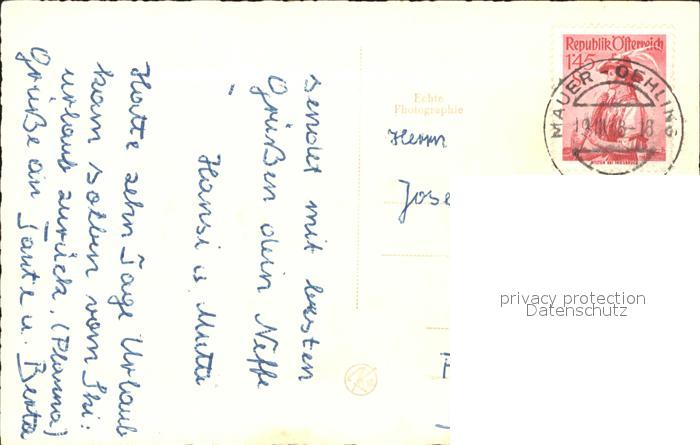 sendet mit besten
Grüßen dein Neffe
Hansi u. Mutti
Hatte zehn Tage Urlaub
kam soeben vom Ski:
urlaub zurück. (Planna)
Grüße an Tante u. Berta
Echte
Photographie
Herrn
Jose
Republik Österreich
1.45
MAUER-OEHLING
privacy protection
Datenschutz